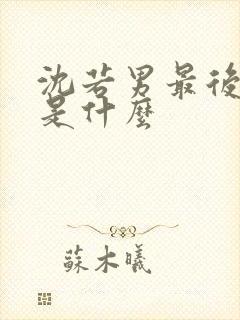 沈若男最後
是什麼
蘇木曦